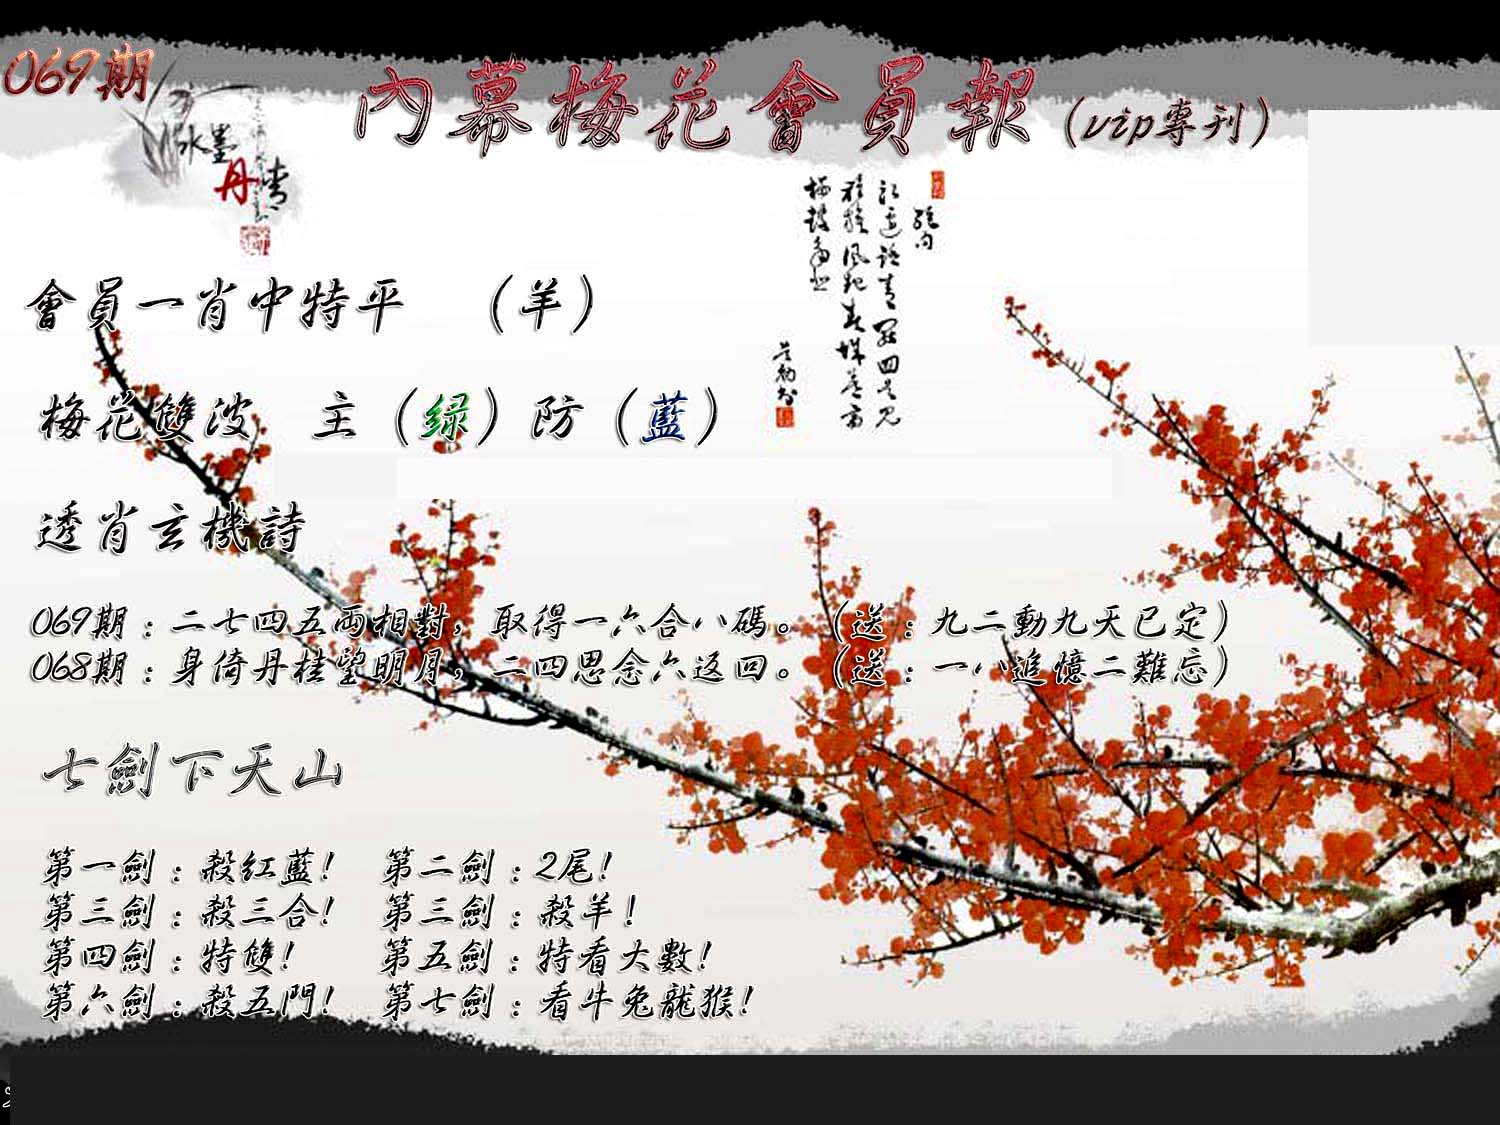 069期
內幕梅花會員報(vip專刊)
水墨
丹青
絕句
會員一肖中特平 (羊)
梅花雙波 主(绿)防(藍)
透肖玄機詩
069期:二七四五兩相對,取得一六合八碼。(送:九二動九天已定)
068期:身倚丹桂望明月,二四思念六返回。(送:一八追憶二難忘)
七劍下天山
第一劍:殺红藍! 第二劍:2尾!
第三劍:殺三合! 第三劍:殺羊!
第四劍:特雙! 第五劍:特看大數!
第六劍:殺五門! 第七劍:看牛兔龍猴!